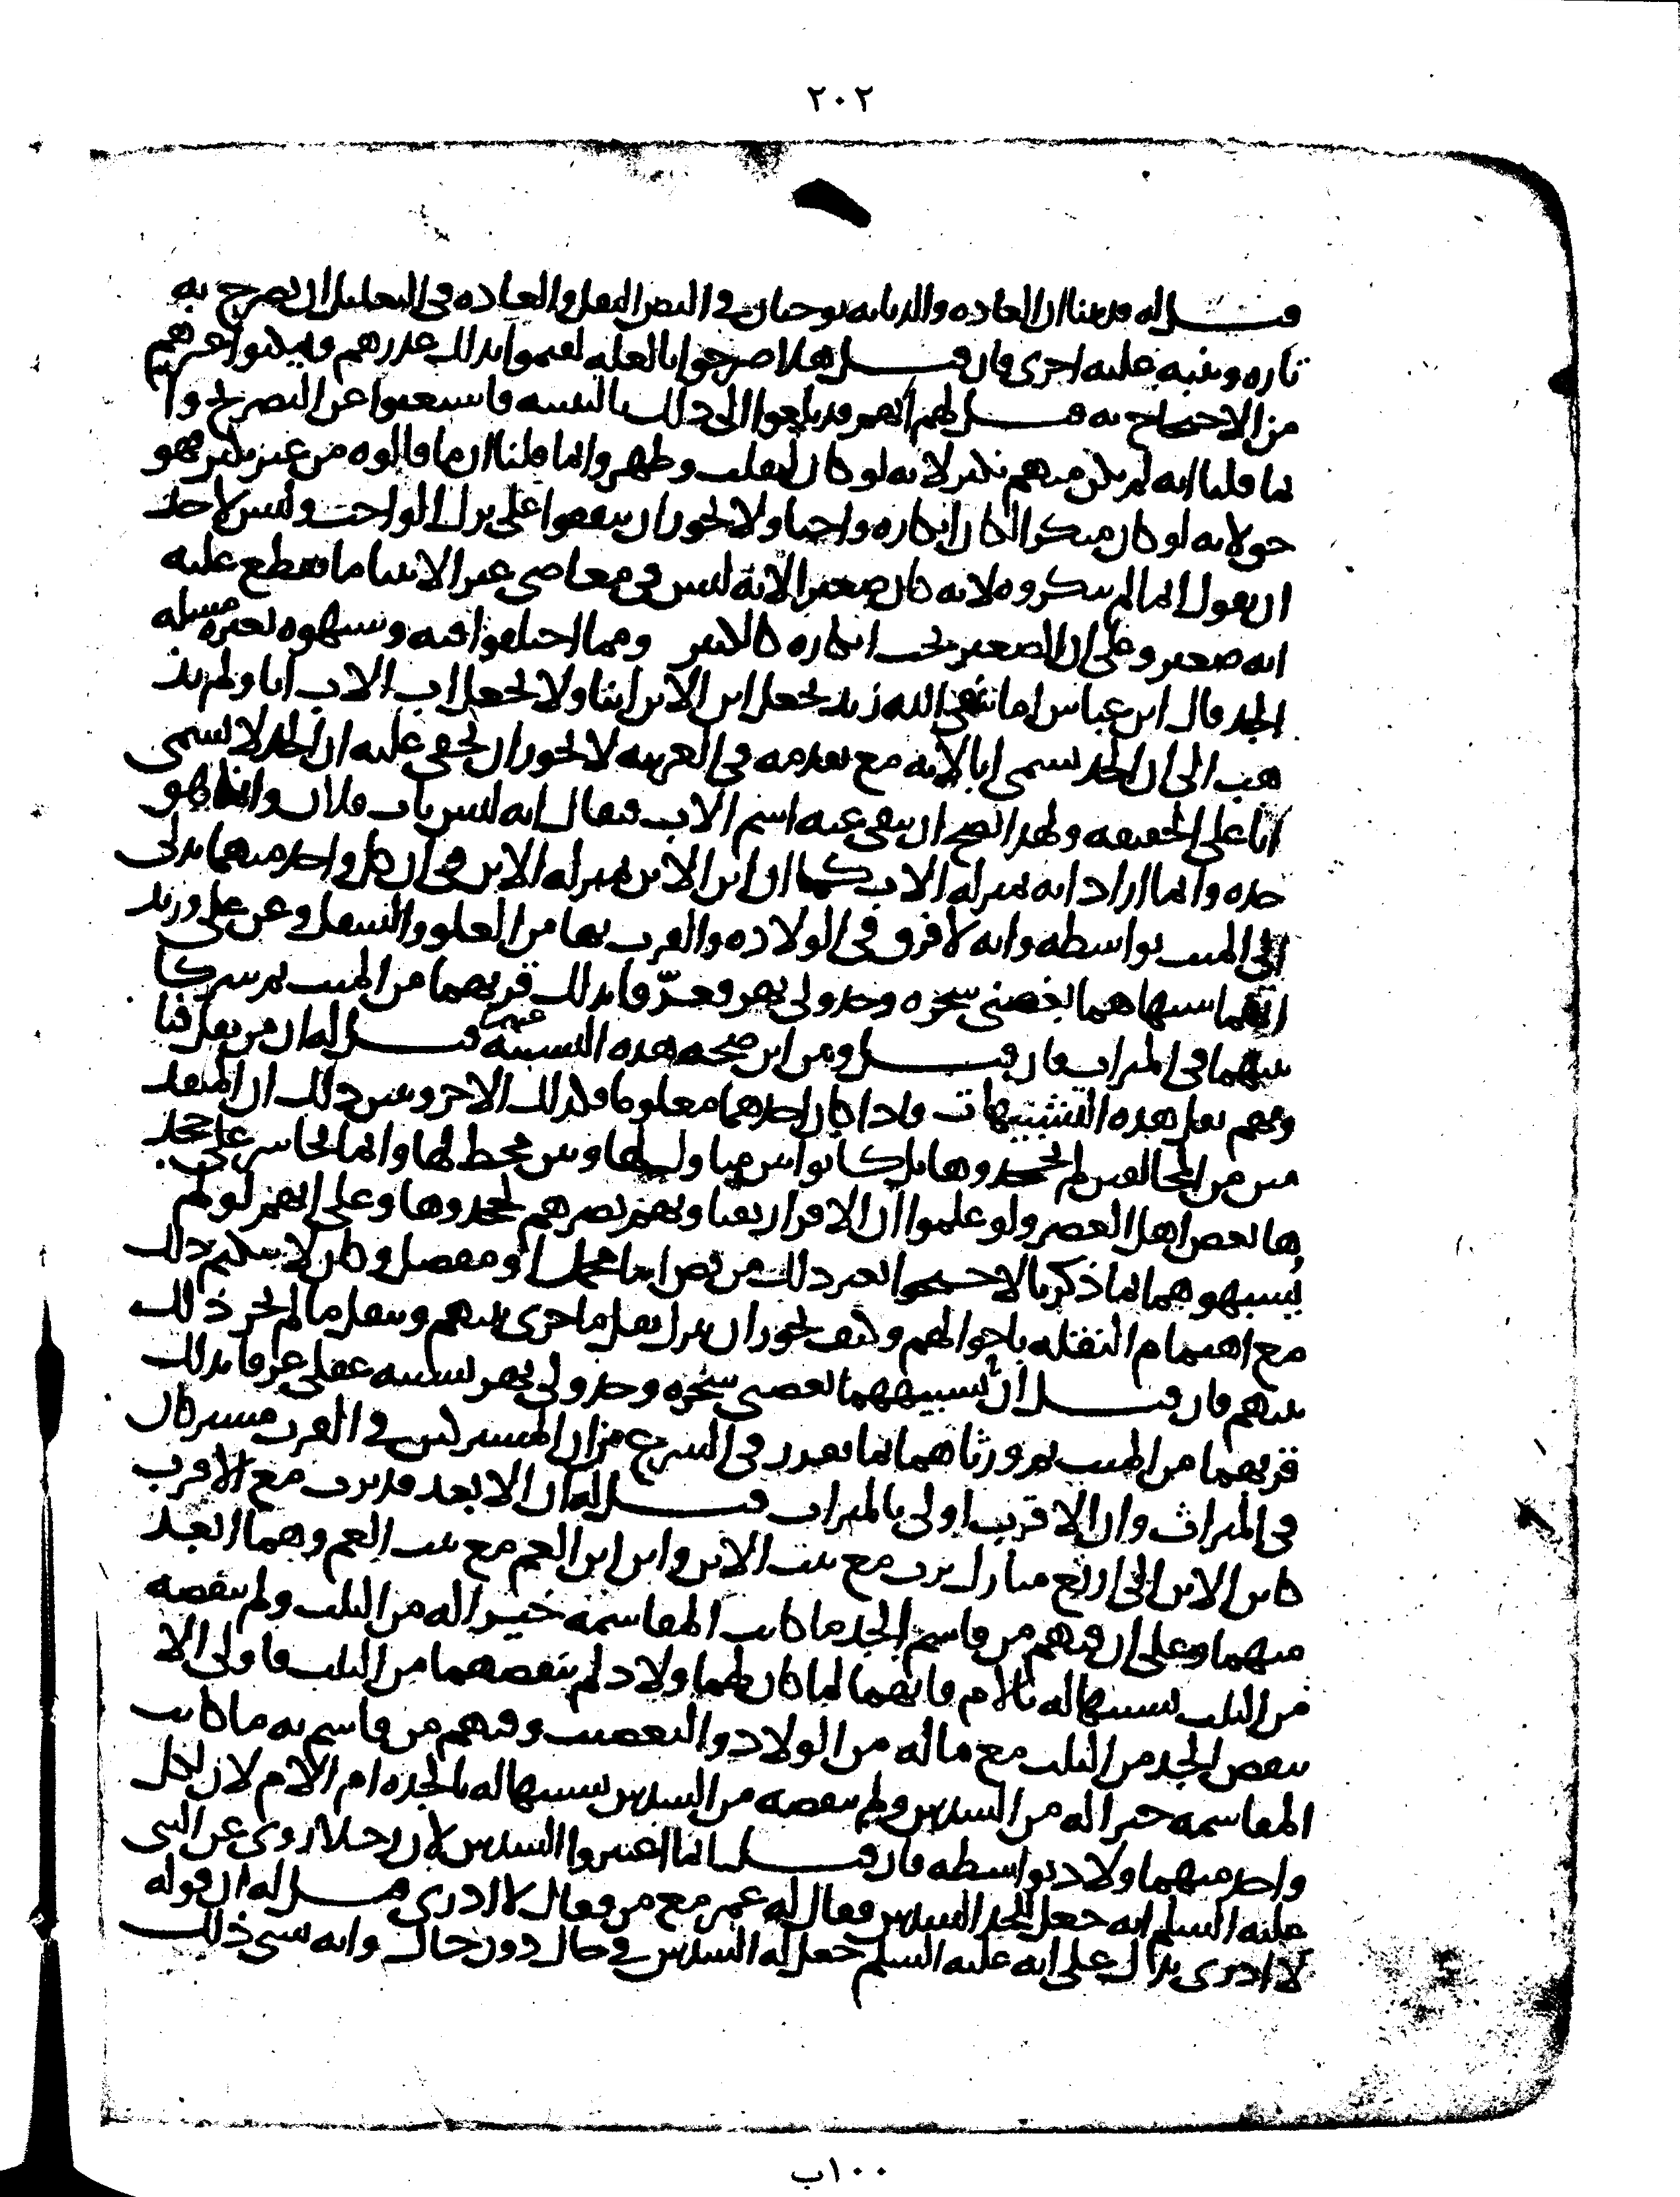 ٢٠٢
قيل له قد بينا ان العاده والديانه يوجبان في النص النقل والعاده في التعليل ان يصرح به
تاره وينبه عليه اخرى فان قيل هلا صرحوا بالعله ليقيموا بذلك عذرهم وليمكنوا غيرهم
من الاحتجاج به قيل لهم انهم قد بلغوا الى ذلك بالتنبيه فاستغنوا عن التصريح وا
نما قلنا انه لم يكن منهم نكير لانه لو كان لنقلت وظهر وانما قلنا ان ما قالوه من غير نكير فهو
حق لانه لو كان منكرا لكان انكاره واجبا ولا يجوز ان يتفقوا على ترك الواجب وليس لاحد
ان يقول انما لم ينكروه لانه كان صغيرا لانه ليس في معاصي غير الانبيا ما نقطع عليه
انه صغير وعلى ان الصغير يجب انكاره كالكبير ومما اختلفوا فيه وشبهوه بغيره مسله
الجد قال ابن عباس اما يتقي الله زيد يجعل ابن الابن ابنا ولا يجعل اب الاب ابا ولم يذ
هب الى ان الجد يسمى ابا لانه مع تقدمه في العربيه لا يجوز ان يخفى عليه ان الجد لا يسمى
ابا على الحقيقه ولهذا يصح ان ينفى عنه اسم الاب فيقال انه ليس باب فلان وانما هو
جده وانما اراد انه بمنزله الاب كما ان ابن الابن بمنزله الابن في ان كل واحد منهما يدلى
الى الميت بواسطه وانه لا فرق في الولاده والقرب بها من العلو والتسفل وعن علي وزيد
انهما شبهاهما بغصني شجره وجدولي نهر فعرفا بذلك قربهما من الميت ثم شركا
بينهما في الميراث فان قيل ومن اين صحه هذه التشبيه عنهم قيل له ان من نقل فتا
ويهم نقل هذه التشبيهات فاذا كان احدهما معلوما فكذلك الاخر ويبين ذلك ان المتقد
مين من المخالفين لم يجحدوها بل كانوا بين متاول لها وبين مخطئ لها وانما تجاسر على جحد
ها بعض اهل العصر ولو علموا ان الاقرار بها وبهم يضرهم لجحدوها وعلى انهم لو لم
يشبهوهما بما ذكر بالاحتجوا بغير ذلك من نص اما مجمل او مفصل وكان لا ينكتم ذلك
مع اهتمام النقله باحوالهم وكيف يجوز ان يترك نقل ما جرى بينهم وينقل ما لم يجر ذلك
بينهم فان قيل ان تشبيههما بغصني شجره وجدولي نهر تشبيه عقلي عرفا بذلك
قربهما من الميت ثم ورثاهما بما تقرر في الشرع من ان المشتركين في القرب مشتركان
في الميراث وان الاقرب اولى بالميراث قيل له ان الابعد قد يرث مع الاقرب
كابن الابن الى اربع منازل يرث مع بنت الابن وابن ابن العم مع بنت العم وهما ابعد
منهما وعلى ان فيهم من قاسم الجد ما كانت المقاسمة خيرا له من الثلث ولم ينقصه
من الثلث تشبيها له بالام فانهما لما كان لهما ولاد لم ينقصهما من الثلث فاولى الا
ينقص الجد من الثلث مع ماله من الولاد والتعصيب وفيهم من قاسم به ما كانت
المقاسمه خيرا له من السدس ولم ينقصه من السدس تشبيها له بالجده ام الام لان لكل
واحد منهما ولاد بواسطه فان قيل انما اعتبروا السدس لان رجلا روى عن النبي
عليه السلم انه جعل للجد السدس فقال له عمر مع من فقال لا ادري قيل له ان قوله
لا ادري يدل على انه عليه السلم جعل له السدس في حال دون حال وانه نسي ذلك
١٠٠ب